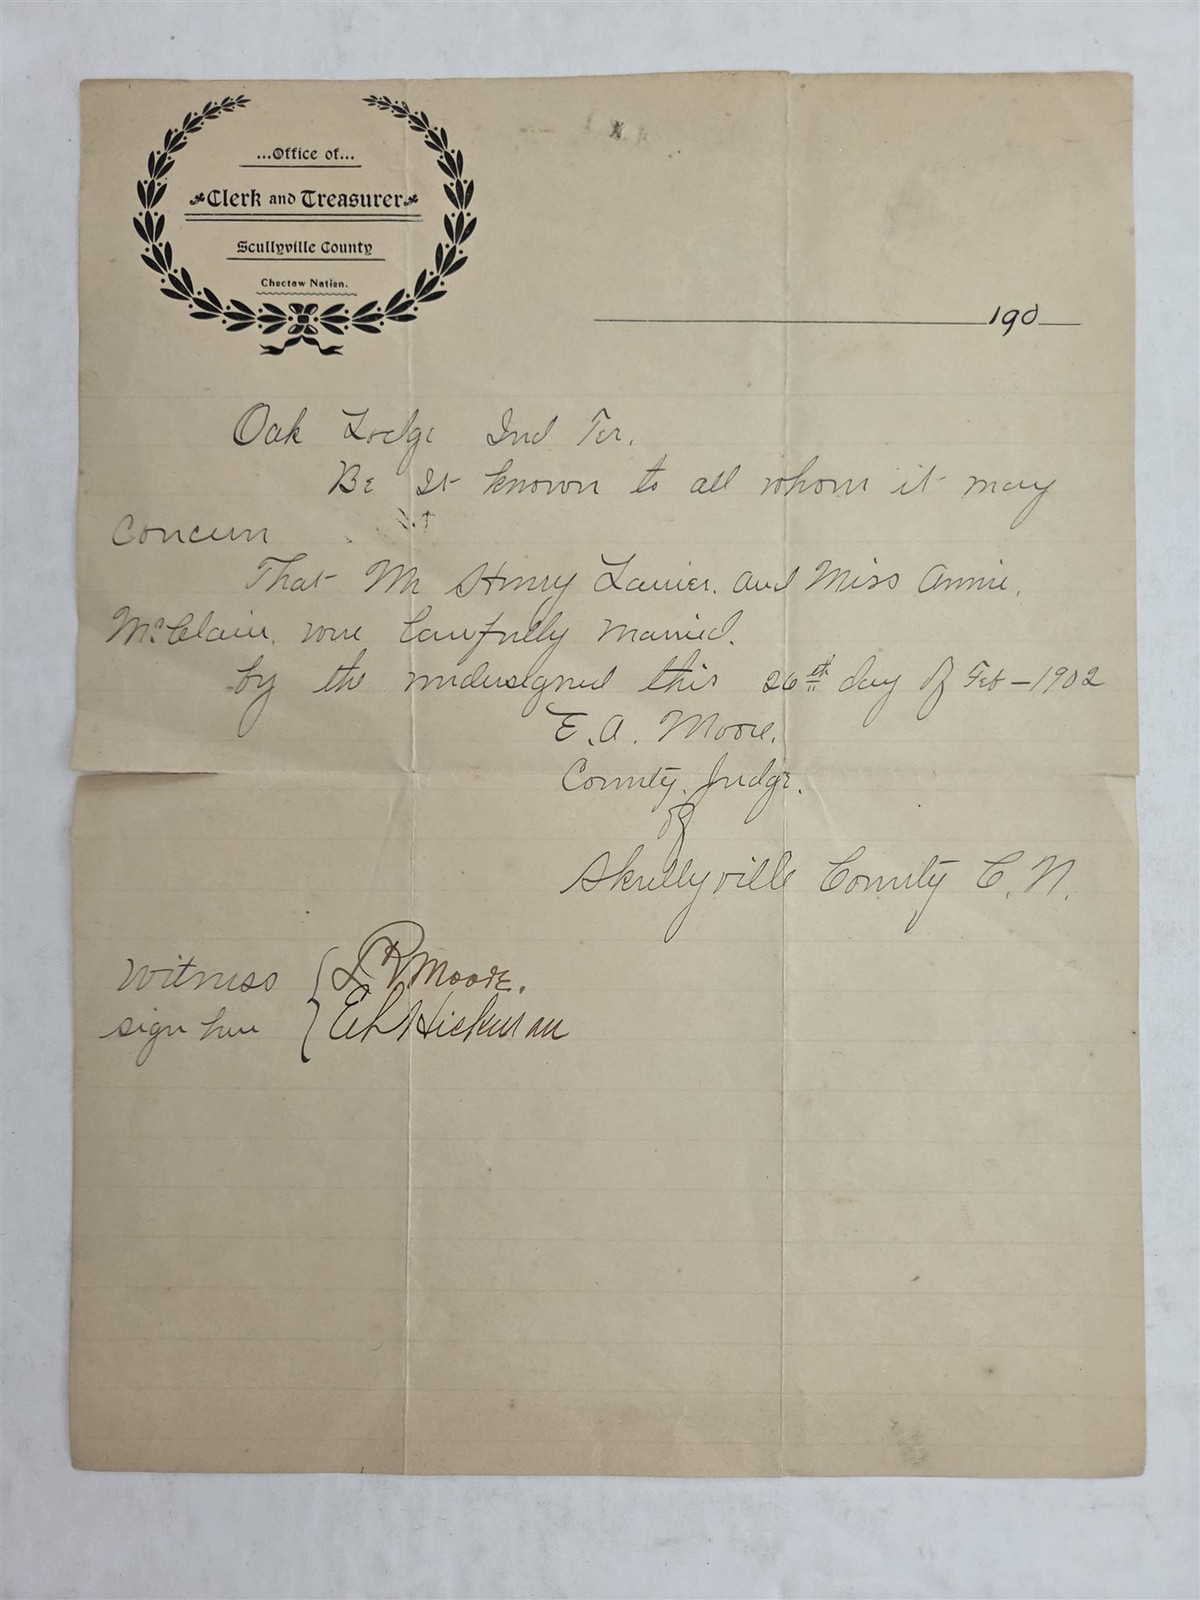 ...Office of...
Clerk and Treasurer
Scullyville County
Choctaw Nation.
190
Oak Lodge Ind Ter.
Be It known to all whom it may
Concern
That Mr Henry Lanier. and Miss Annie.
McClain. were lawfully married.
by the undersigned this 26th day of Feb - 1902
E. A. Moore.
County Judge.
of
Skullyville County C. N.
Witness
sign here
Moore.
Hickman